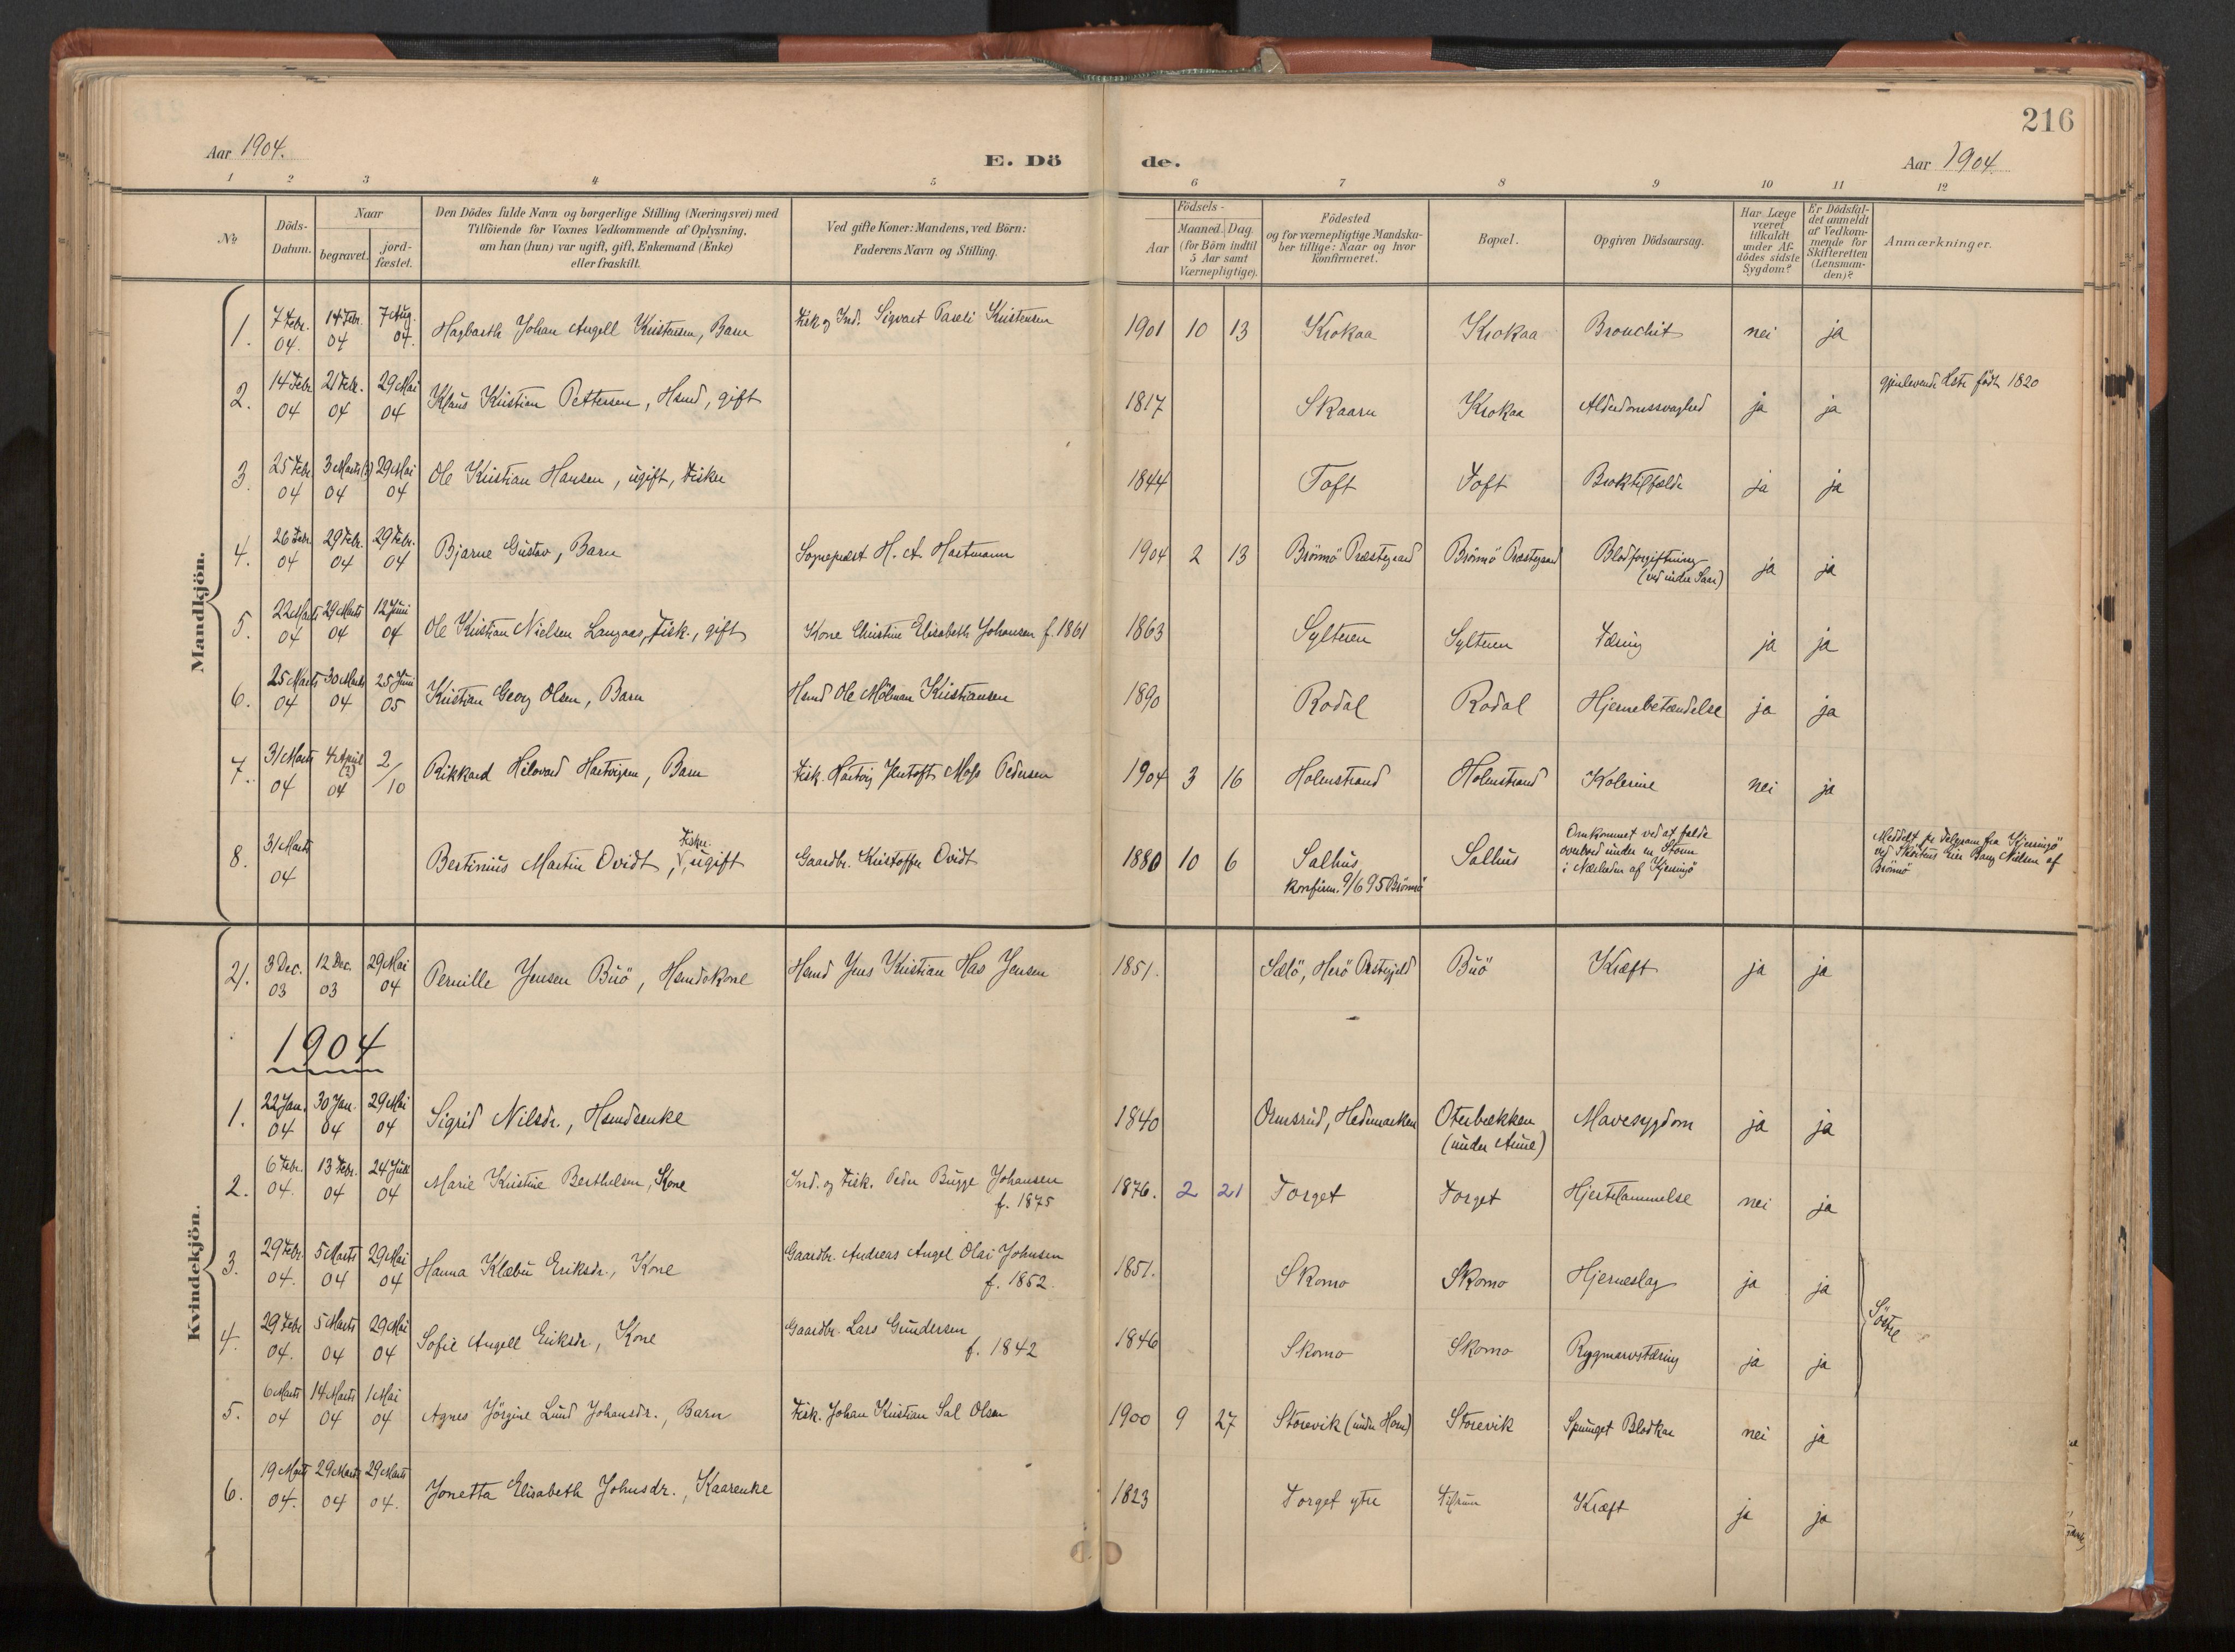 216
Aar 1904.
E. Dö
de.
Aar 1904.
1 2 3 4 5 6 7 8 9 10 11 12
No.
Döds-Datum.
Naar
begravet.
jord-fæstet.
Den Dödes fulde Navn og borgerlige Stilling (Næringsvei) med
Tilföiende for Voxnes Vedkommende af Oplysning,
om han (hun) var ugift, gift, Enkemand (Enke)
eller fraskilt.
Ved gifte Koner: Mandens, ved Börn:
Faderens Navn og Stilling.
Födsels-
Aar
Maaned. Dag.
(for Börn indtil
5 Aar samt
Værnepligtige).
Födested
og for værnepligtige Mandska-
ber tillige: Naar og hvor
konfirmeret.
Bopæl.
Opgiven Dödsaarsag.
Har Læge
været
tilkaldt
under Af-
dödes sidste
Sygdom?
Er Dödsfal-
det anmeldt
af Vedkom-
mende for
Skifteretten
(Lensman-
den)?
Anmærkninger.
Mandkjön.
1. 7 Febr. 04. 14 Febr. 04 7 Aug. 04. Hagbarth Johan Angell Kristensen, Barn Fisk og Ind. Sigvart Paseli Kristensen 1901 10 13 Krokaa Krokaa Bronchit nei ja
2. 14 Febr. 04 21 Febr. 04 29 Mai 04 Klaus Kristian Pettersen, Hsmd, gift 1817 Skaarn Krokaa Alderdomssvaghed ja ja gjenlevende født 1820
3. 25 Febr. 04 3 Marts (?) 04 29 Mai 04 Ole Kristian Hansen, ugift, Fisker 1844 Toft Toft Broktilfælde ja ja
4. 26 Febr. 04 29 Febr. 04 29 Febr. 04 Bjarne Gustav, Barn Sognepræst H. A. Hartmann 1904 2 13 Brönnö Præstegaard Brönnö Præstegaard Blodforgiftning
(ved indre Saar) ja ja
5. 22 Marts 04 29 Marts 04 12 Juni 04 Ole Kristian Nielsen Langaas, Fisk., gift Kone Christine Elisabeth Johansen f. 1861 1863 Sylteren Sylteren Tæring ja ja
6. 25 Marts 04 30 Marts 04 25 Juni 05 Kristian Georg Olsen, Barn Hsmd Ole Mölman Kristiansen 1890 Rodal Rodal Hjernebetændelse ja ja
7. 31 Marts 04 4 April (?) 04 2/10 Rikkard Hilovard Hartvigsen, Barn Fisk. Hartvig Jentoft Moss Pedersen 1904 3 16 Holmstrand Holmstrand Kolerine nei ja
8. 31 Marts 04 Bertinius Martin Ovidt, Fisker, ugift Gaardbr. Kristoffer Ovidt 1880 10 6 Salhus
konfirm. 9/6 95 Brönnö Salhus Omkommet ved at falde
overbord under en Storm
i Nærheden af Kjerringö Meddelt pr Telegram fra Kjerringö
ved Skösteins Eier Bang Nielsen af
Brönnö
Kvindekjön.
21. 3 Dec. 03 12 Dec. 03 29 Mai 04 Pernille Jensen Buö, Hsmdskone Hsmd Jens Kristian Has Jensen 1851. Sælö, Herö Præstegjeld Buö Kræft ja ja
1904
1. 22 Jan. 04 30 Jan. 04 29 Mai 04 Sigrid Nilsdr., Hsmdsenke 1840 Ormsrud, Hedemarken Oterbækken
(under Aune) Mavesygdom ja ja
2. 6 Febr. 04. 13 Febr. 04 24 Juli 04 Marie Kristine Berthelsen, Kone Ind. og Fisk. Peder Bugge Johansen
f. 1875 1876. 2 21 Torget Torget Hjertelammelse nei ja
3. 29 Febr. 04. 5 Marts 04 29 Mai 04 Hanna Klæbu Eriksdr., Kone Gaardbr. Andreas Angel Olai Johnsen
f. 1852. 1851. Skomo Skomo Hjerneslag ja ja
Söstre
4. 29 Febr. 04. 5 Marts 04 29 Mai 04 Sofie Angell Eriksdr., Kone Gaardbr. Lars Gundersen
f. 1842 1846 Skomo Skomo Rygmarvstæring ja ja
5. 6 Marts 04 14 Marts 04 1 Mai 04 Agnes Jörgine Lund Johansdr., Barn Fisk. Johan Kristian Sal Olsen 1900 9 27 Storevik (under Horn) Storevik Sprunget Blodkar nei ja
6. 19 Marts 04. 29 Marts 04 29 Marts 04. Jonetta Elisabeth Johnsdr., Kaarenke 1823 Torget ytre Kræft ja ja